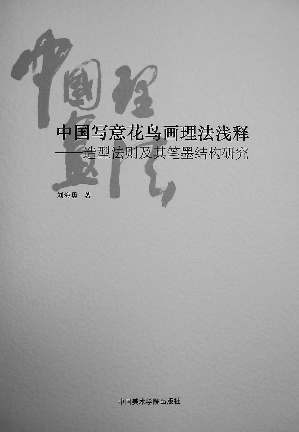 中國畫理法
中国写意花鸟画理法浅释
——造型法则及其笔墨结构研究
著
中国美术学院出版社